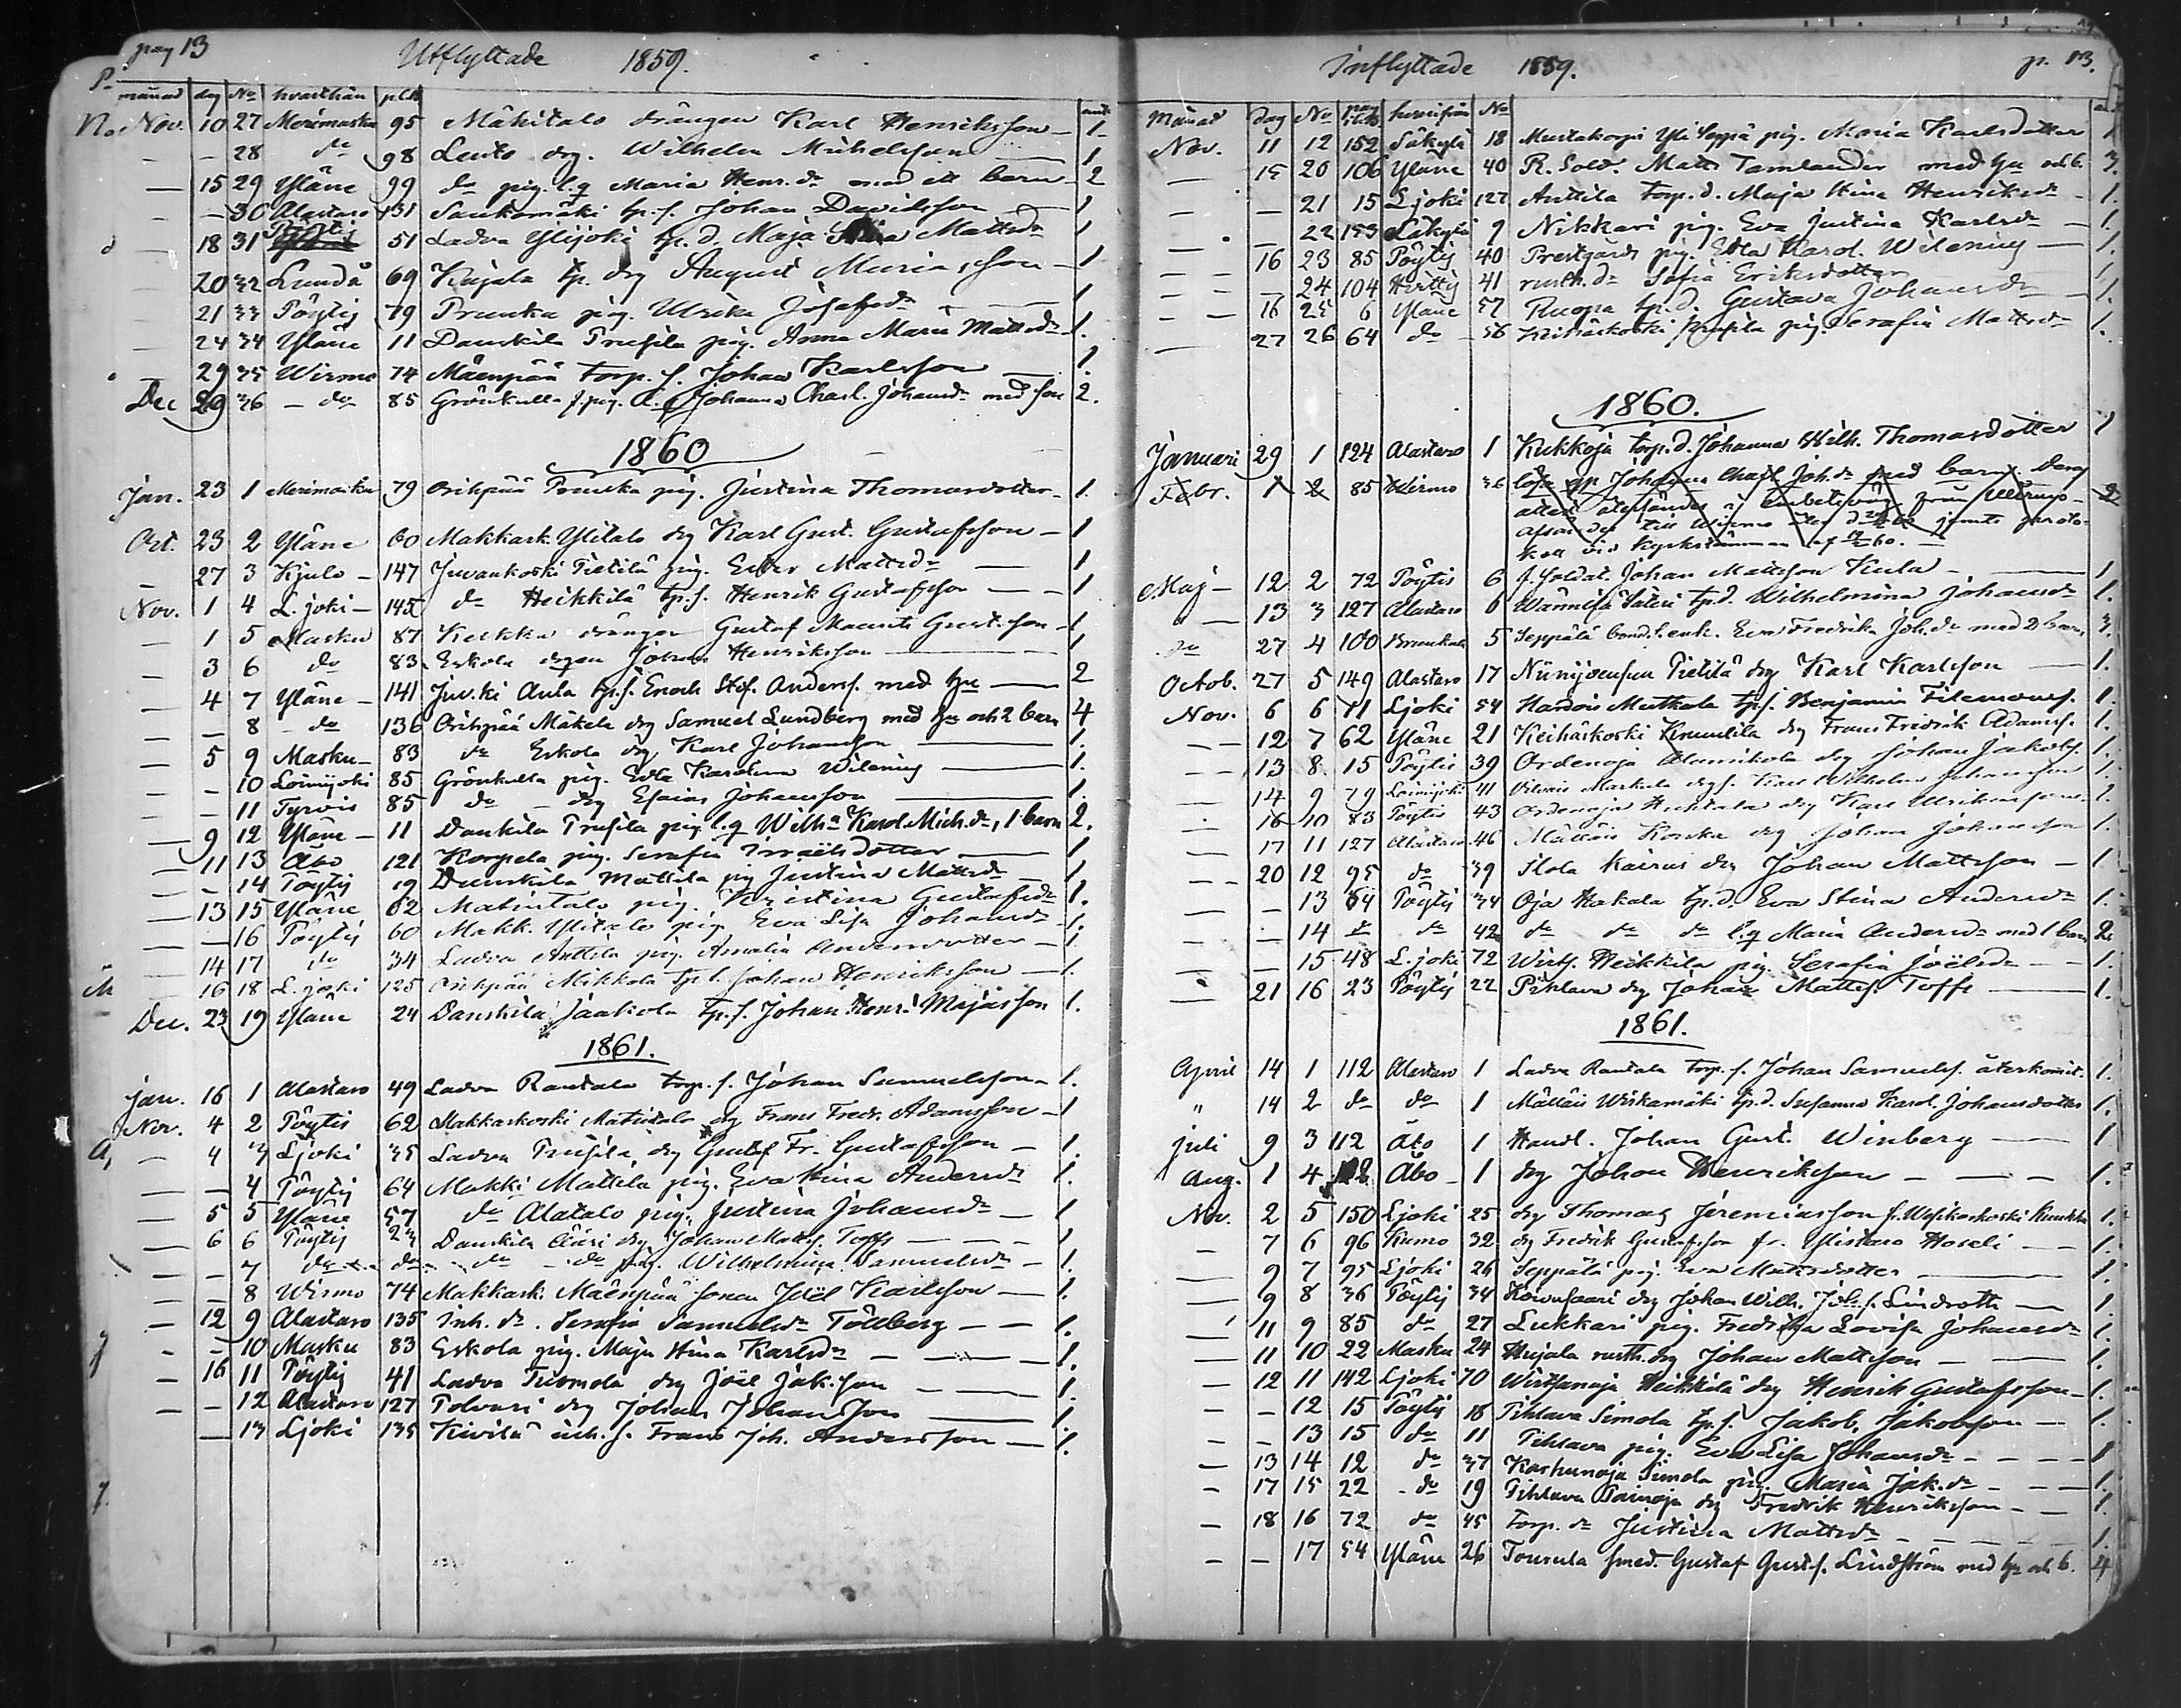 pag 13 Utflyttade 1859.
månad dag No hvarthän p.l.b. ant.
Nov. 10 27 Merimasku 95 Mäkitalo drängen Karl Henriksson 1
28 do 98 Lento drg. Wilhelm Michelsson 1
15 29 Yläne 99 do pig. l.q. Maria Henr.dr med ett barn 2
30 Alastaro 131 Sankomäki tp.s. Johan Davidsson 1
18 31 Pöytis 51 Ladva Ylijoki tp.d. Maja Mattsdr 1
20 32 Lundå 69 Kujala tp. drg August Mariasson 1
21 33 Pöytis 79 Prunka pig. Ulrika Josefsdr 1
24 34 Yläne 11 Danskila Prusila pig. Anna Maria Mattsdr 1.
29 35 Wirmo 74 Mäenpää torp. s. Johan Karlsson 1
Dec 29 36 do 85 Grönkulla f. pig. Johanna Charl. Johansdr med son 2.
1860
Jan. 23 1 Merimasku 79 Orihpää Prunka pig. Justina Thomasdotter 1.
Oct. 23 2 Yläne 60 Makkark. Ylitalo drg Karl Gust. Gustafsson 1
27 3 Kjulo 147 Juvankoski Pietilä pig. Ester Mattsdr 1
Nov. 1 4 L.joki 145 do Heikkilä tp.s. Henrik Gustafsson 1
1 5 Masku 87 Keikka drängen Gustaf Maurits Gust.son 1
3 6 do 83 Eskola drgen Johan Henriksson 1
4 7 Yläne 141 Juv.ki Aula tp.s. Enoch Stef. Anders. med hu 2
8 do 136 Orihpää Mäkelä drg Samuel Lundberg med hu och 2 barn 4
5 9 Masku 83 do Eskola drg Karl Johansson 1.
10 Loimijoki 85 Grönkulla pig. Edla Karolina Wilenius 1
11 Tyrvis 85 do drg Esaias Johansson 1.
9 12 Yläne 11 Danskila Prusila pig l.q. Wilha Karol. Mich.dr, 1 barn 2.
11 13 Åbo 121 Korpela pig. Serafia Israelsdotter 1
14 Pöytis 19 Danskila Mattila pig Justina Mattsdr 1
13 15 Yläne 62 Matintalo pig. Kristina Gustafsdr 1.
16 Pöytis 60 Makk. Ylitalo pig. Eva Lisa Johansdr 1.
14 17 do 34 Ladva Anttila pig. Amalia Andersdotter 1
16 18 L.joki 125 Orihpää Mikkola tp.s. Johan Henriksson 1.
Dec. 23 19 Yläne 24 Danskila Jaakola tp.s. Johan Henr. Majasson 1.
1861.
jan. 16 1 Alastaro 49 Ladva Rantala torp. s. Johan Samuelsson 1.
Nov. 4 2 Pöytis 62 Makkarkoski Matintalo drg Frans Fredr. Adamsson 1
4 3 Ljoki 35 Ladva Prusila drg Gustaf Fr. Gustafsson 1.
4 Pöytis 64 Makki Mattila pig. Eva Stina Andersdr 1.
5 5 Yläne 57 do Alatalo pig. Justina Johansdr 1
6 6 Pöytis 23 Danskila Ääri drg Johan Matts. Toffs 1
7 do do do do pig. Wilhelmina Samuelsdr 1.
8 Wirmo 74 Makkark. Mäenpää sonen Joël Karlsson 1.
12 9 Alastaro 135 Inh. dr. Serafia Samuelsdr Tollberg 1.
10 Masku 83 Eskola pig. Maja Stina Karlsdr 1.
16 11 Pöytis 41 Ladva Tuomola drg Joël Jak.son 1.
12 Alastaro 127 Polvari drg Johan Johansson 1.
13 Ljoki 135 Kivilä inh. s. Frans Joh. Andersson 1.
Inflyttade 1859. p. 13.
Månad dag No pag hvarifrån No
Nov. 11 12 152 Säkylä 18 Mustakorpi Yli Seppä pig. Maria Karlsdotter 1
15 20 106 Yläne 40 R. Sold. Matts Tamlander med hu och b. 3.
21 15 Ljoki 127 Anttila torp.d. Maja Stina Henriksdr 1.
22 153 Säkylä 9 Nikkari pig. Eva Justina Karlsdr 1.
16 23 85 Pöytis 40 Prestgårds pig. Edla Karol. Wilenius 1.
24 104 Hvittis 41 rusth.dr Sofia Eriksdotter 1.
16 25 6 Yläne 57 Ruopa tp.d. Gustava Johansdr 1.
27 26 64 do 58 Keihäskoski Krapila pig. Serafia Mattsdr 1.
1860.
Januari 29 1 124 Alastaro 1 Kukkoja torp.d. Johanna Wilh. Thomasdotter 1
Febr. 1 2 85 Wirmo 36 lösa qp Johanna Charl. Joh.dr med barn. Deras 2
attest återsändes i embetsväg från Wirmo
afsändes till Wirmo jemte protokoll
vid kyrkostämman
Maj 12 2 72 Pöytis 6 f. Soldat. Johan Mattsson Kula 1
13 3 127 Alastaro 6 Wännilä Säteri tp.d. Wilhelmina Johansdr 1.
do 27 4 100 Brunkala 5 Seppälä bond. enk. Eva Fredrika Joh.dr med 2 barn 3.
Octob. 27 5 149 Alastaro 17 Niinijoensuu Pietilä drg Karl Karlsson 1.
Nov. 6 6 71 Ljoki 54 Hardois Mutkala tp.s. Benjamin Filemons. 1.
12 7 62 Yläne 21 Keihäskoski Kruutila drg Frans Fridrik Adams. 1.
13 8 15 Pöytis 39 Ordenoja Alanikola drg Johan Jakobs. 1.
14 9 79 Loimijoki 41 Vilvais Markula drg s. Karl Wilhelm Johansson 1.
16 10 83 Pöytis 43 Ordenoja Huhtala drg Karl Ulriksson 1.
17 11 127 Alastaro 46 Mälläis Konka drg Johan Johansson 1.
20 12 95 do 39 Ilola Kairus drg Johan Mattsson 1
13 64 Pöytis 34 Oja Hakala tp.d. Eva Stina Andersdr 1.
14 do do 42 do do do l.q Maria Andersdr med 1 barn 2.
15 48 L.joki 72 Wirts. Heikkilä pig Serafia Joëlsdr 1.
21 16 23 Pöytis 22 Pihlava drg Johan Matts. Toffs 1.
1861.
April 14 1 112 Alastaro 1 Ladva Rantala torp. s. Johan Samuels. återkommit. 1.
" 14 2 do do 1 Mälläis Wiskamäki tp.d. Susanna Karol. Johansdotter 1.
juli 9 3 112 Åbo 1 Handl. Johan Gust. Winberg 1
Aug. 1 4 Åbo 1 drg Johan Henriksson 1.
Nov. 2 5 150 Ljoki 25 drg Thomas Jeremiasson fr. Wesikoskoski 1.
7 6 96 Kumo 32 drg Fredrik Gustafsson fr. Ylistaro Hoseli 1.
9 7 95 Ljoki 26 Seppälä pig. Eva Mattsdotter 1.
9 8 36 Pöytis 34 Kovasaari drg Johan Wilh. Joh.s. Lindroth 1.
11 9 85 do 27 Lukkari pig. Fredrika Lovisa Johansdr 1.
11 10 22 Masku 24 Hujala rusth. drg Johan Mattsson 1.
12 11 142 Ljoki 70 Wirtsanoja Heikkilä drg Henrik Gustafsson 1.
12 15 Pöytis 16 Pihlava Simola tp.s. Jakob Jakobsson 1.
13 15 do 11 Pihlava pig. Eva Lisa Johansdr 1
13 14 12 do 37 Karhunoja Simola pig. Maria Jak.dr 1.
17 15 22 do 19 Pihlava Painoja drg Fredrik Henriksson 1.
18 16 72 do 45 Torp. dr Justina Mattsdr 1.
17 54 Yläne 26 Tourula smed. Gustaf Gusts. Lindström med hu och b. 4